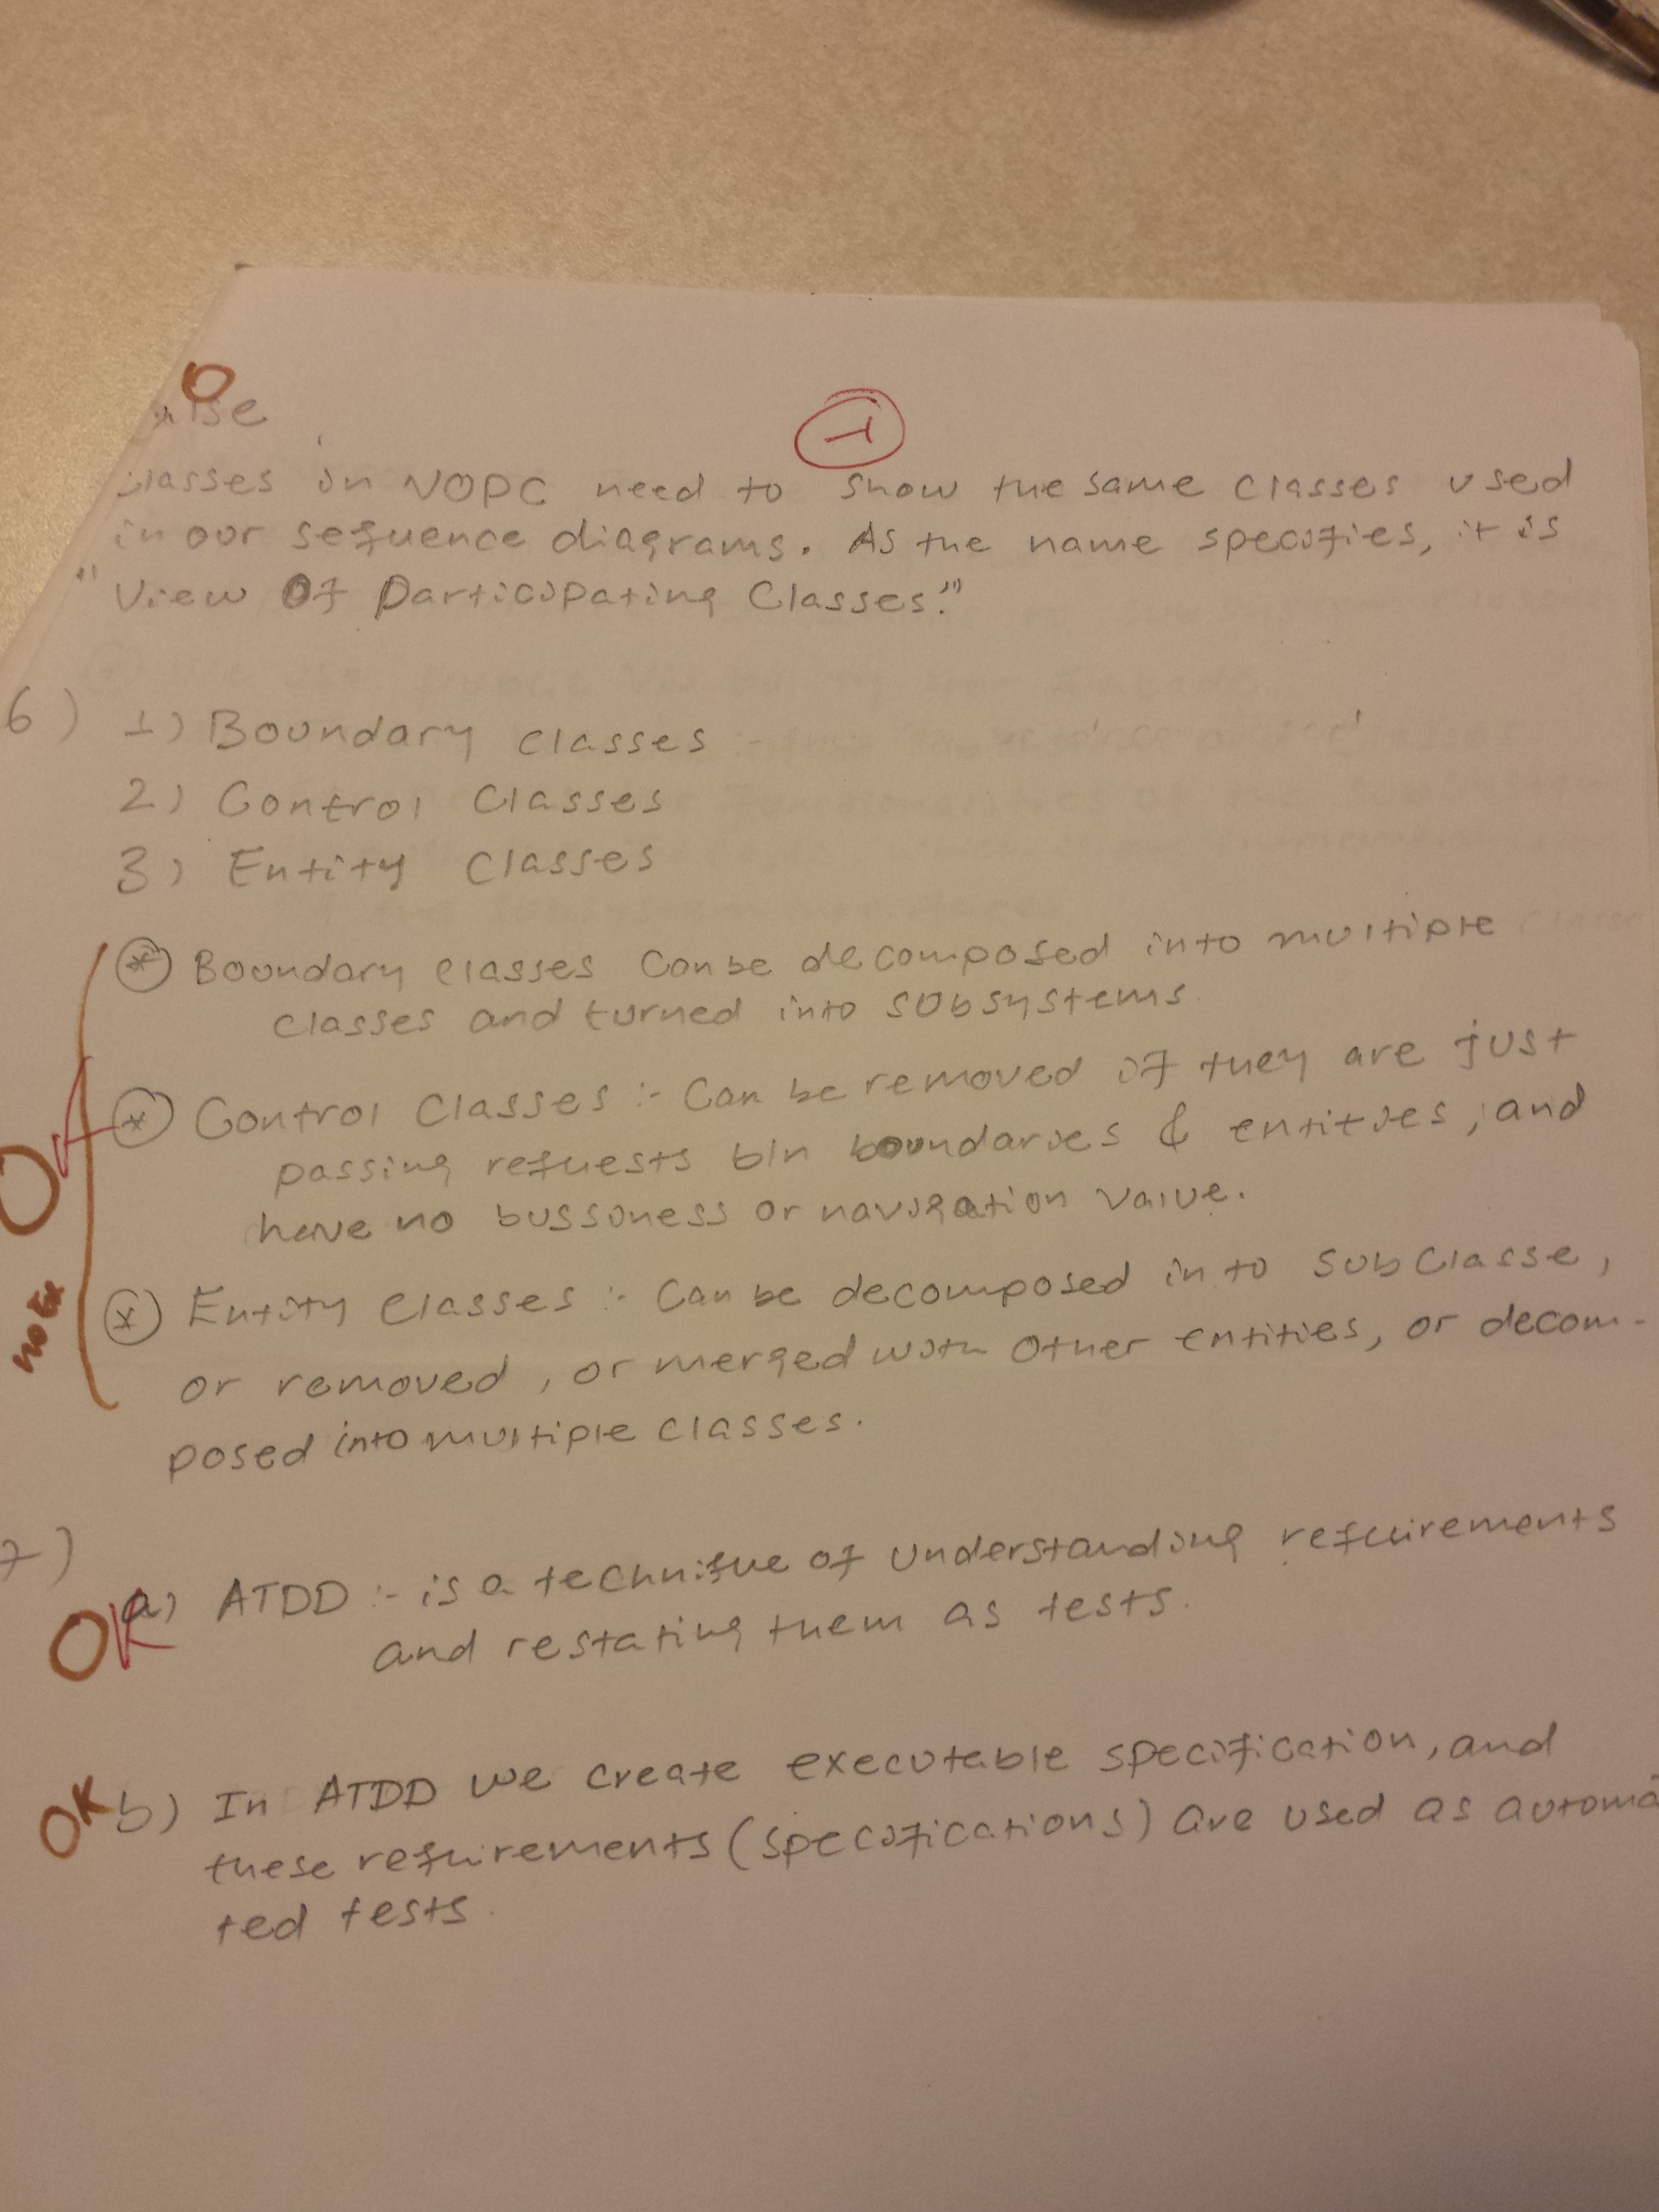 O
-1
classes in VOPC need to show the same classes used
in our sequence diagrams. As the name specifies, it is
"View Of Participating Classes."
6) 1) Boundary classes
2) Control Classes
3) Entity Classes
* Boundary classes Can be decomposed into multiple
classes and turned into subsystems.
* Control Classes :- Can be removed if they are just
passing requests b/n boundaries & entities, and
have no bussiness or navigation value.
* Entity Classes :- Can be decomposed into SubClasse,
or removed, or merged with other entities, or decom-
posed into multiple classes.
no
7)
OK a) ATDD :- is a technique of understanding requirements
and restating them as tests.
OK b) In ATDD we create executable specification, and
these requirements (specifications) are used as automa
ted tests.